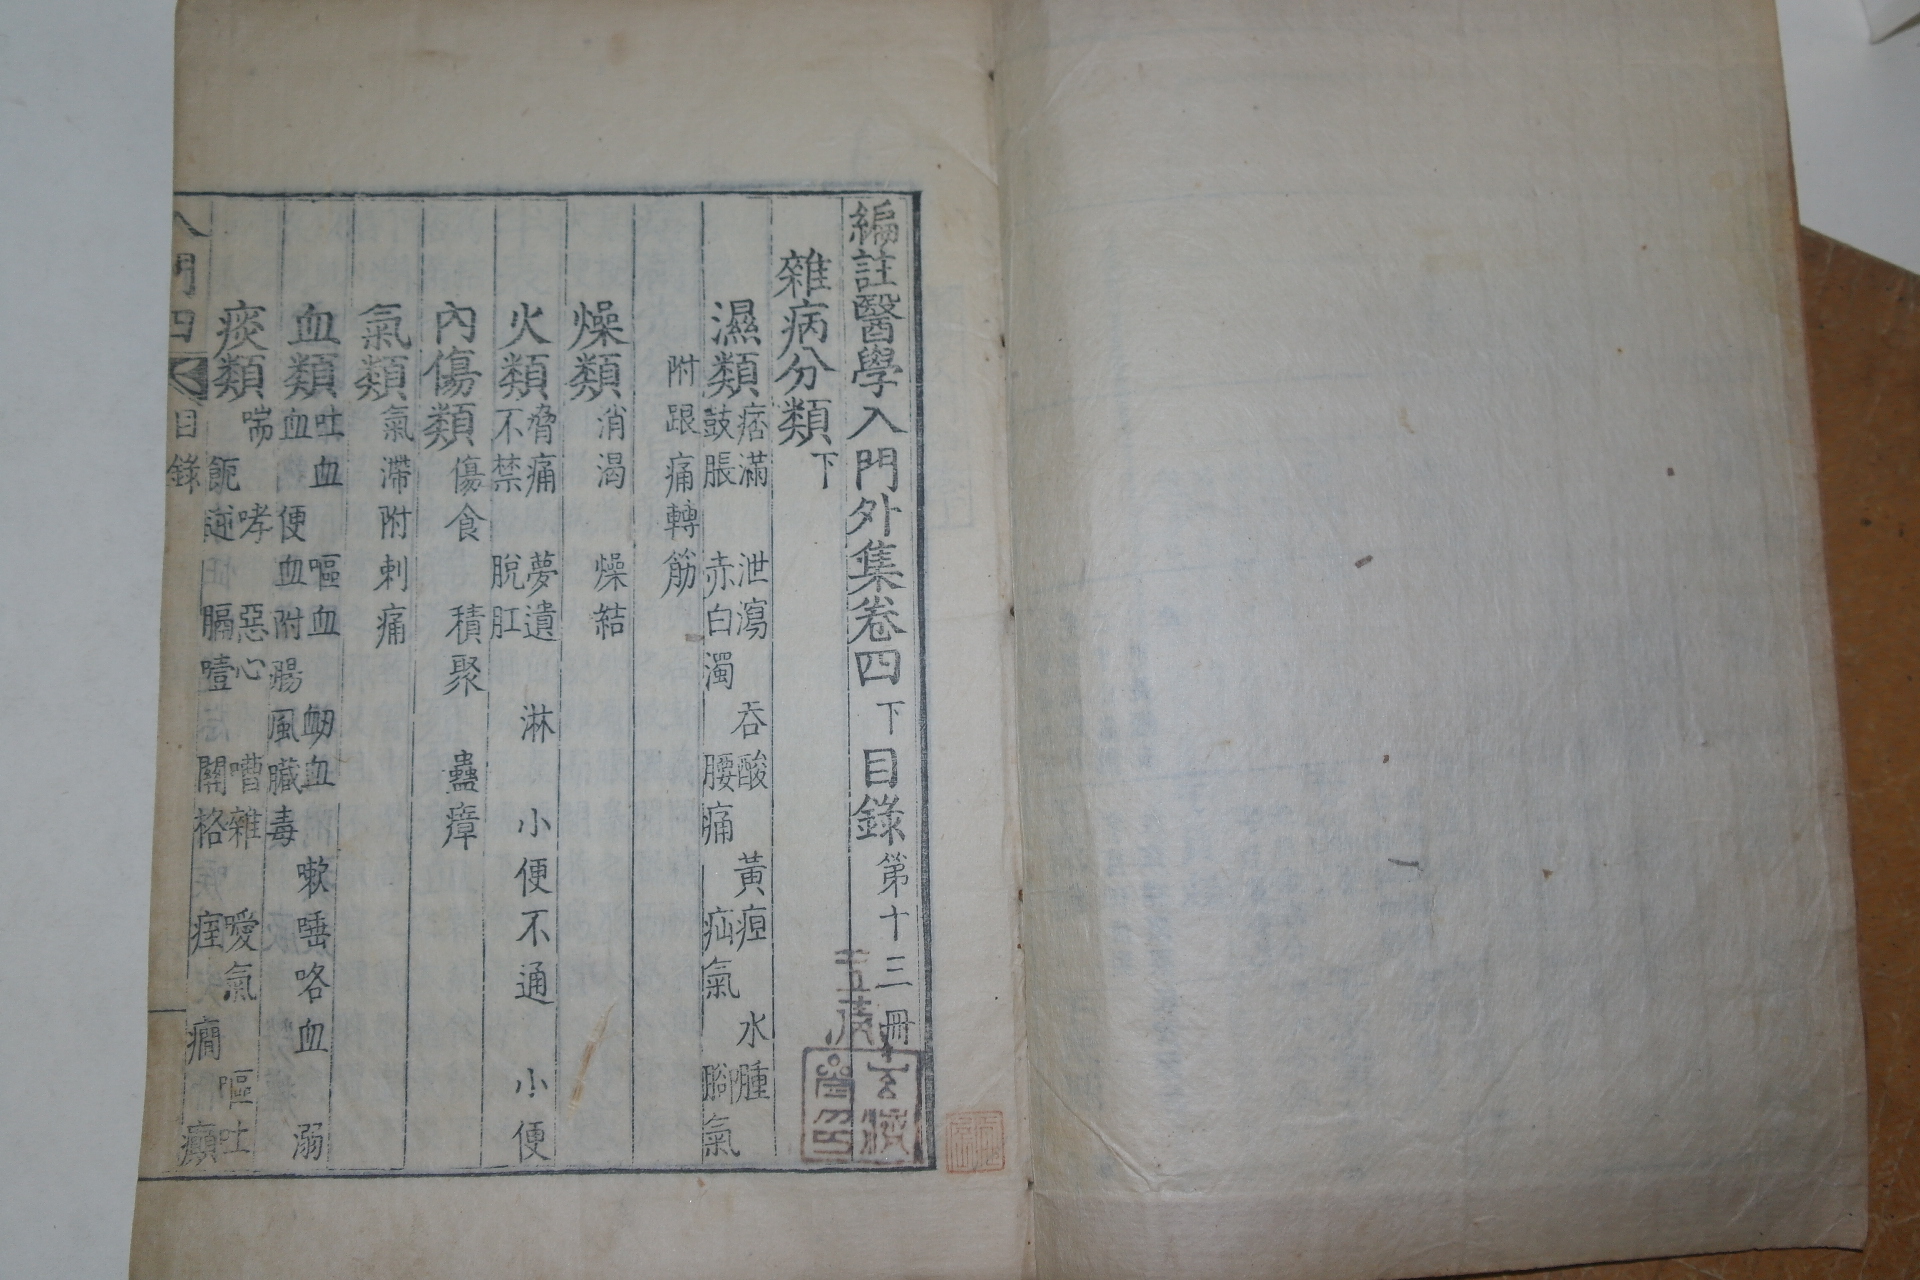 編註醫學入門外集卷四下目錄第十三冊
雜病分類下
濕類 痞滿 泄瀉 吞酸 黃疸 水腫
鼓脹 赤白濁 腰痛 疝氣 腳氣
附跟痛轉筋
燥類 消渴 燥結
火類 脅痛 夢遺 淋 小便不通 小便
不禁 脫肛
內傷類 傷食 積聚 蟲瘴
氣類 氣滯附刺痛
血類 吐血 嘔血 衂血 嗽唾咯血 溺
血 便血附腸風臟毒
痰類 喘 哮 惡心 嘈雜 噯氣 嘔吐
膈噎 關格 痓 癇 癲
入門四 目錄